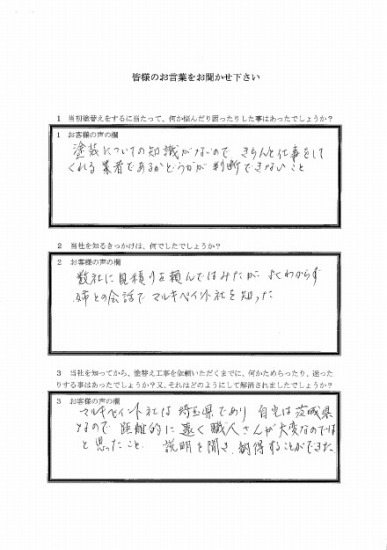 皆様のお言葉をお聞かせ下さい
1 当初塗替えをするに当たって、何か悩んだり困ったりした事はあったでしょうか?
1 お客様の声の欄
塗装についての知識がないので きちんと仕事をして
くれる業者であるかどうかが 判断できないこと
2 当社を知るきっかけは、何でしたでしょうか?
2 お客様の声の欄
数社に見積りを頼んではみたが よくわからず
姉との会話で マルキペイント社を知った
3 当社を知ってから、塗替え工事を依頼いただくまでに、何かためらったり、迷った
りする事はあったでしょうか?又、それはどのようにして解消されましたでしょうか?
3 お客様の声の欄
マルキペイント社は 埼玉県であり 自宅は茨城県
なので 距離的に遠く職人さんが大変なのでは
と思ったこと. 説明を聞き、納得することができた